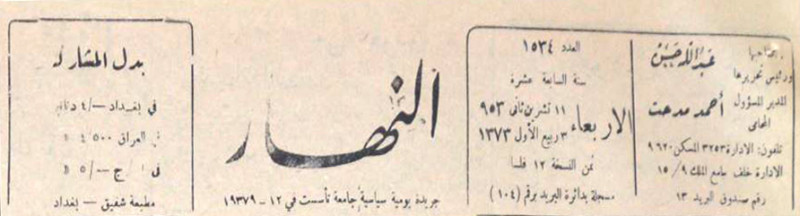 صاحبها
ورئيس تحريرها
عبدالله حسن
المدير المسؤول
المحامي
أحمد مدحت
تلفون: الادارة ٣٢٥٣ المسكن ٩٦٢٠
الادارة خلف جامع الملك ٩/ ١٥
رقم صندوق البريد ١٣
العدد ١٥٣٤
سنة السابعة عشرة
الاربعاء
١١ تشرين ثانى ٩٥٣
٣ ربيع الأول ١٣٧٣
ثمن النسخة ١٢ فلسا
مسجلة بدائرة البريد برقم (١٠٤)
النهار
جريدة يومية سياسية جامعة تأسست في ١٢-
بدل المشاركة
في بغداد -/٤
العراق ٤٥٠٠
في -/٥
مطبعة شفيق - بغداد